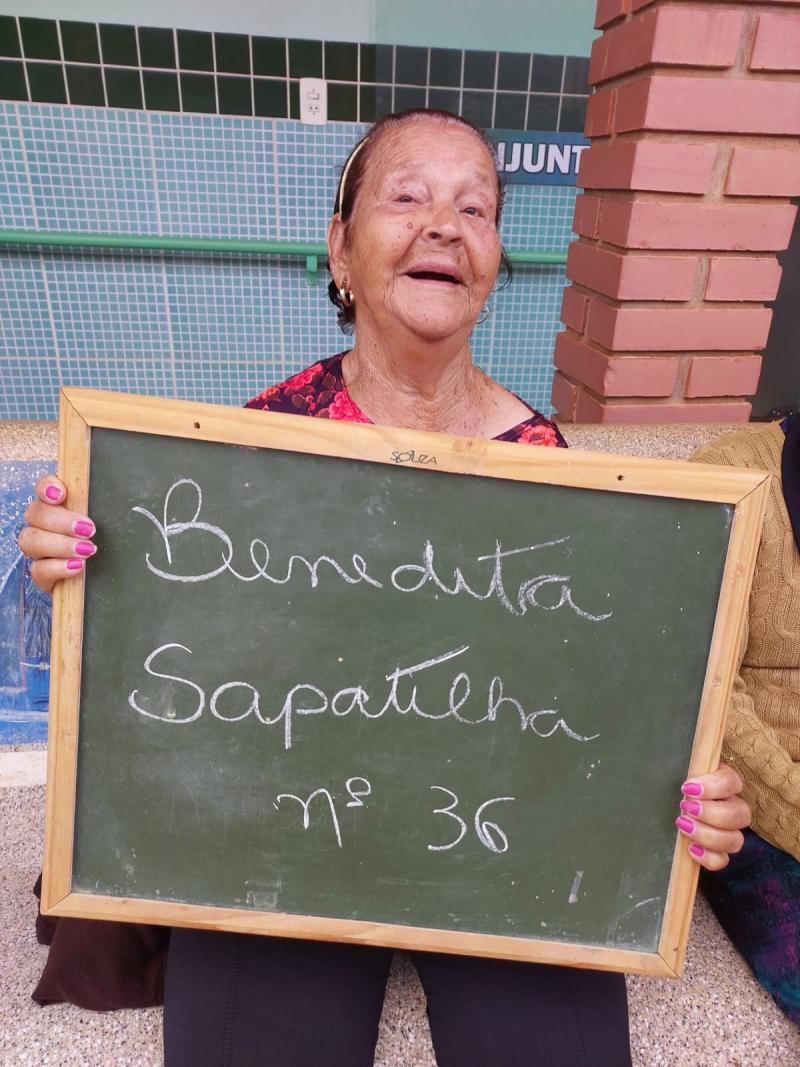 IJUNT
SOUZA
Benedita
Sapatilha
nº 36